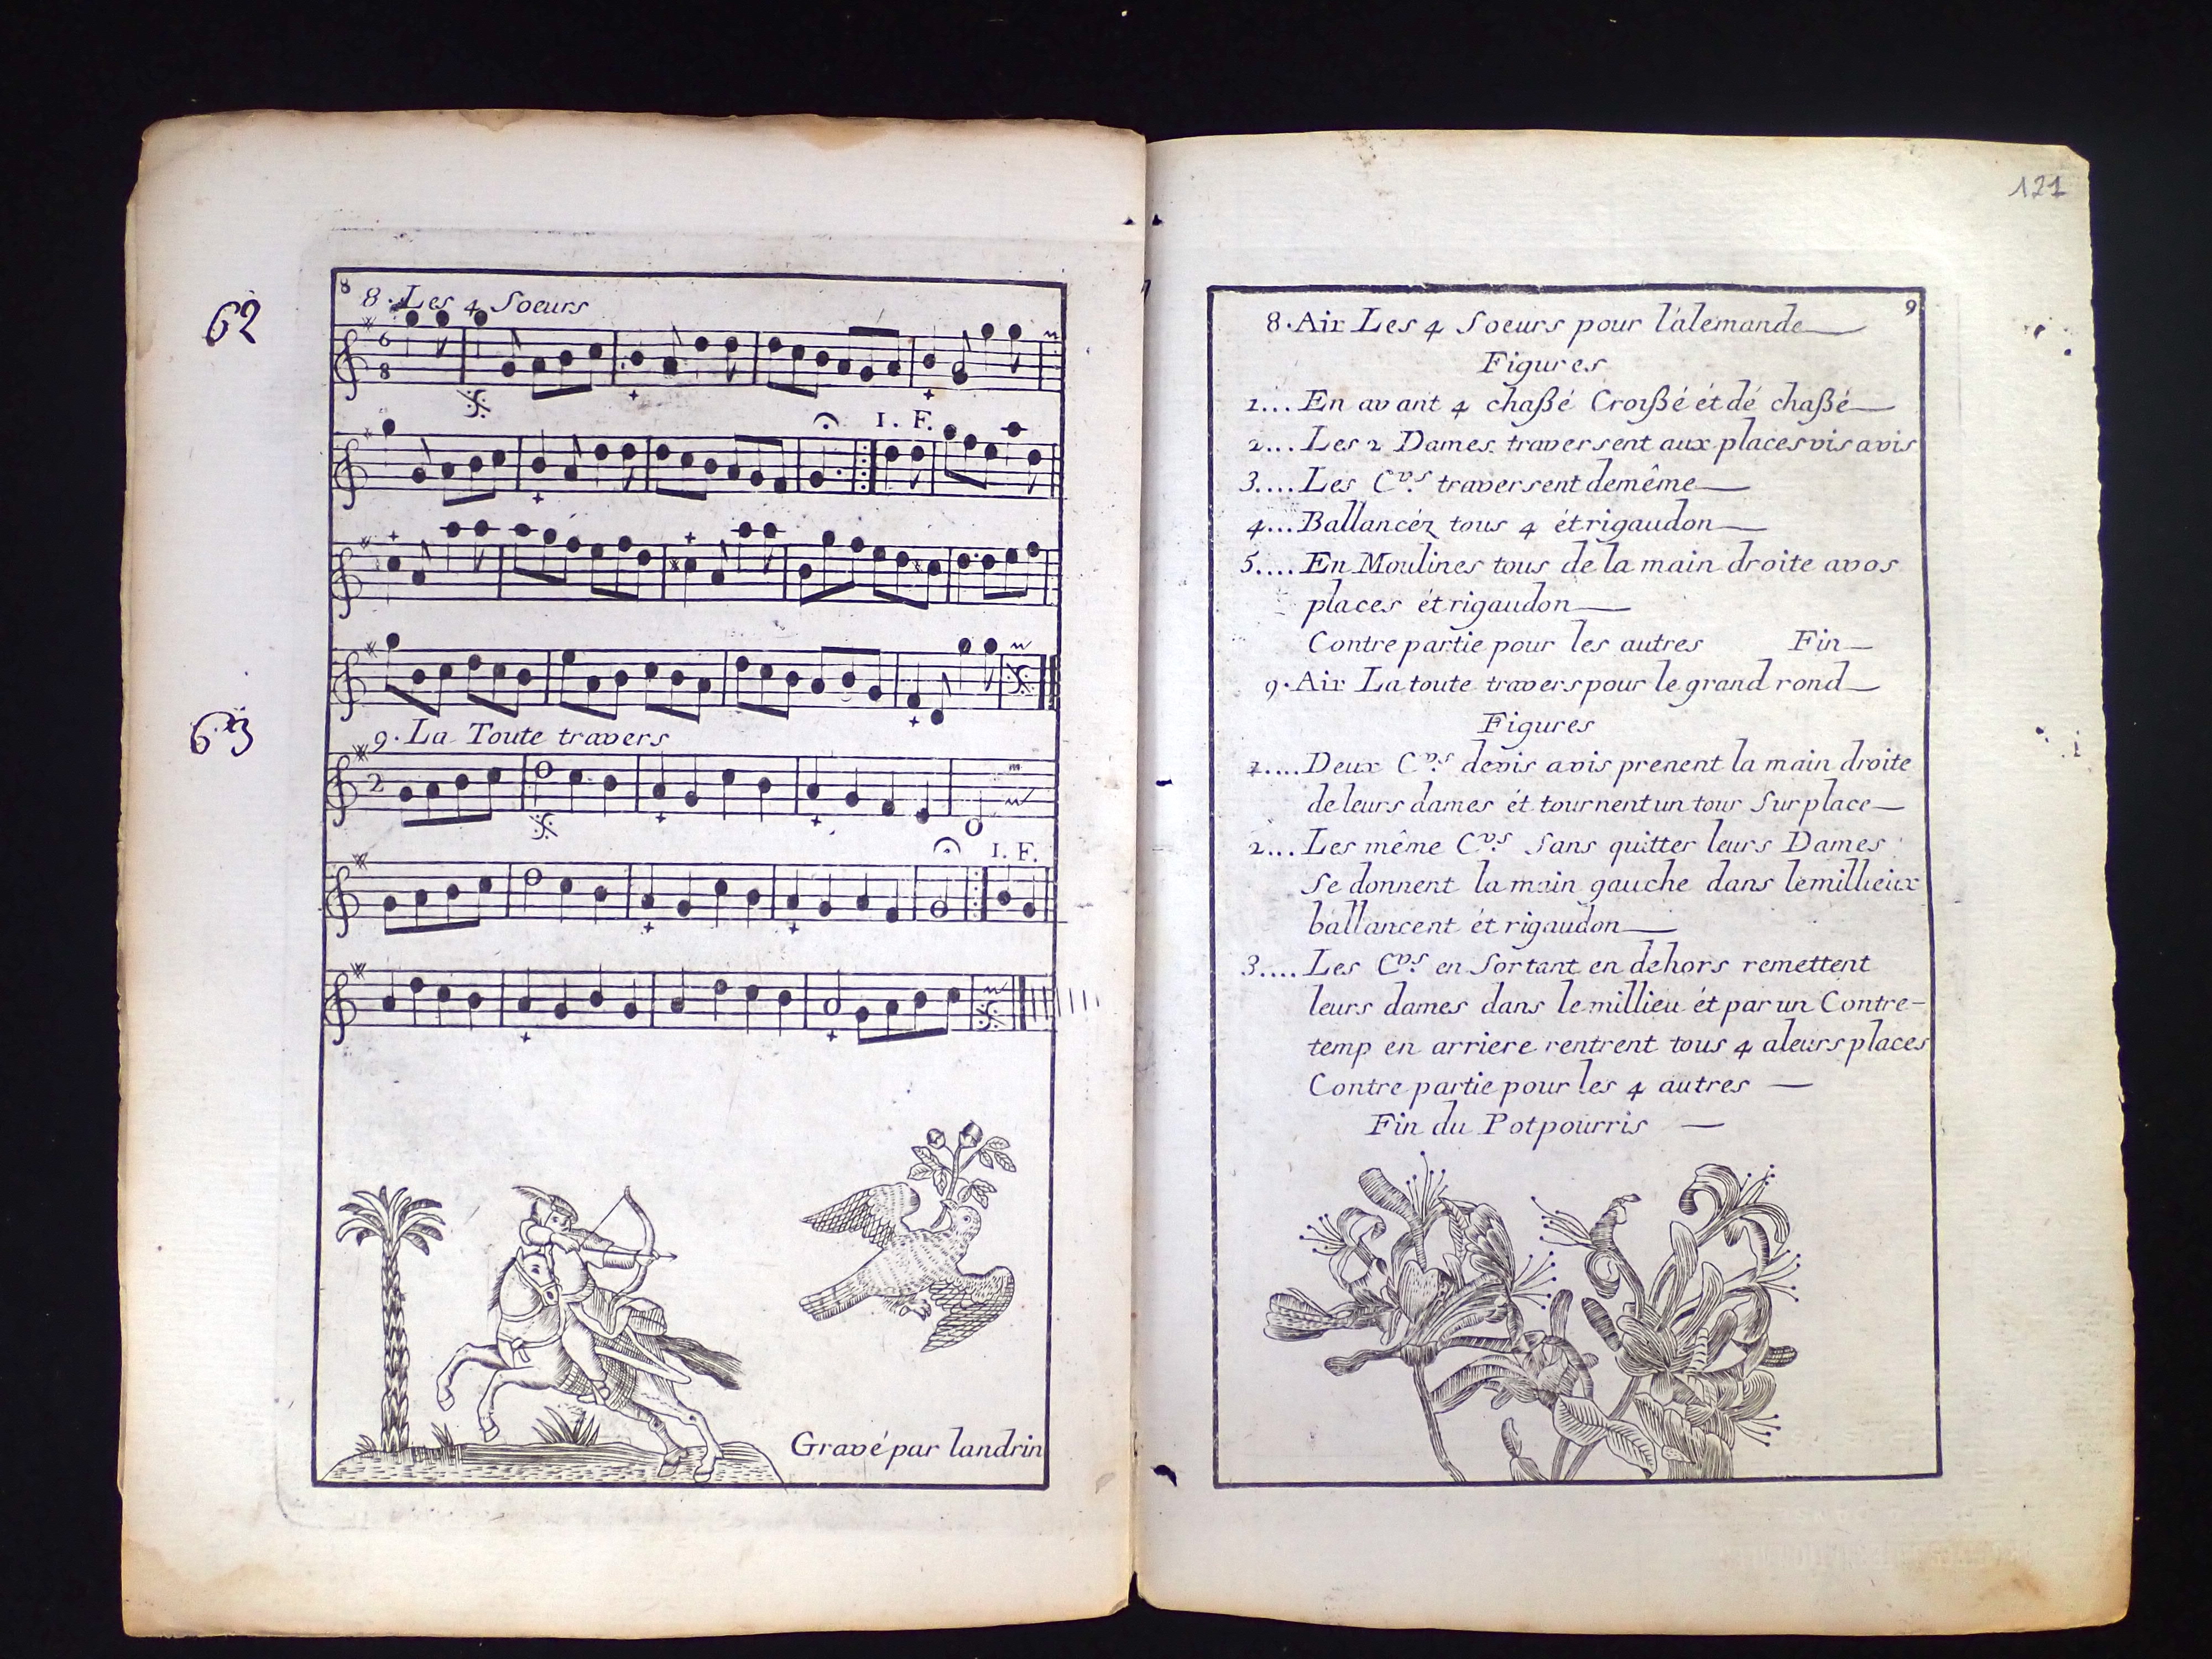 62
63
8
8. Les 4 Soeurs
6
8
1. F.
9. La Toute travers
2
1. F.
Gravé par landrin
121
9
8. Air Les 4 Soeurs pour l'alemande
Figures
1... En avant 4 chaßé Croißé ét dé chaßé
2... Les 2 Dames traversent aux places vis avis
3.... Les Cvs. traversent demême
4... Ballancéz tous 4 ét rigaudon
5.... En Moulines tous de la main droite avos
places ét rigaudon
Contre partie pour les autres Fin
9. Air La toute travers pour le grand rond
Figures
1.... Deux Cvs. devis avis prenent la main droite
de leurs dames ét tournent un tour Sur place
2... Les même Cvs. Sans quitter leurs Dames
Se donnent la main gauche dans le millieux
ballancent ét rigaudon
3.... Les Cvs. en Sortant en dehors remettent
leurs dames dans le millieu ét par un Contre-
temp en arriere rentrent tous 4 aleurs places
Contre partie pour les 4 autres
Fin du Potpourris